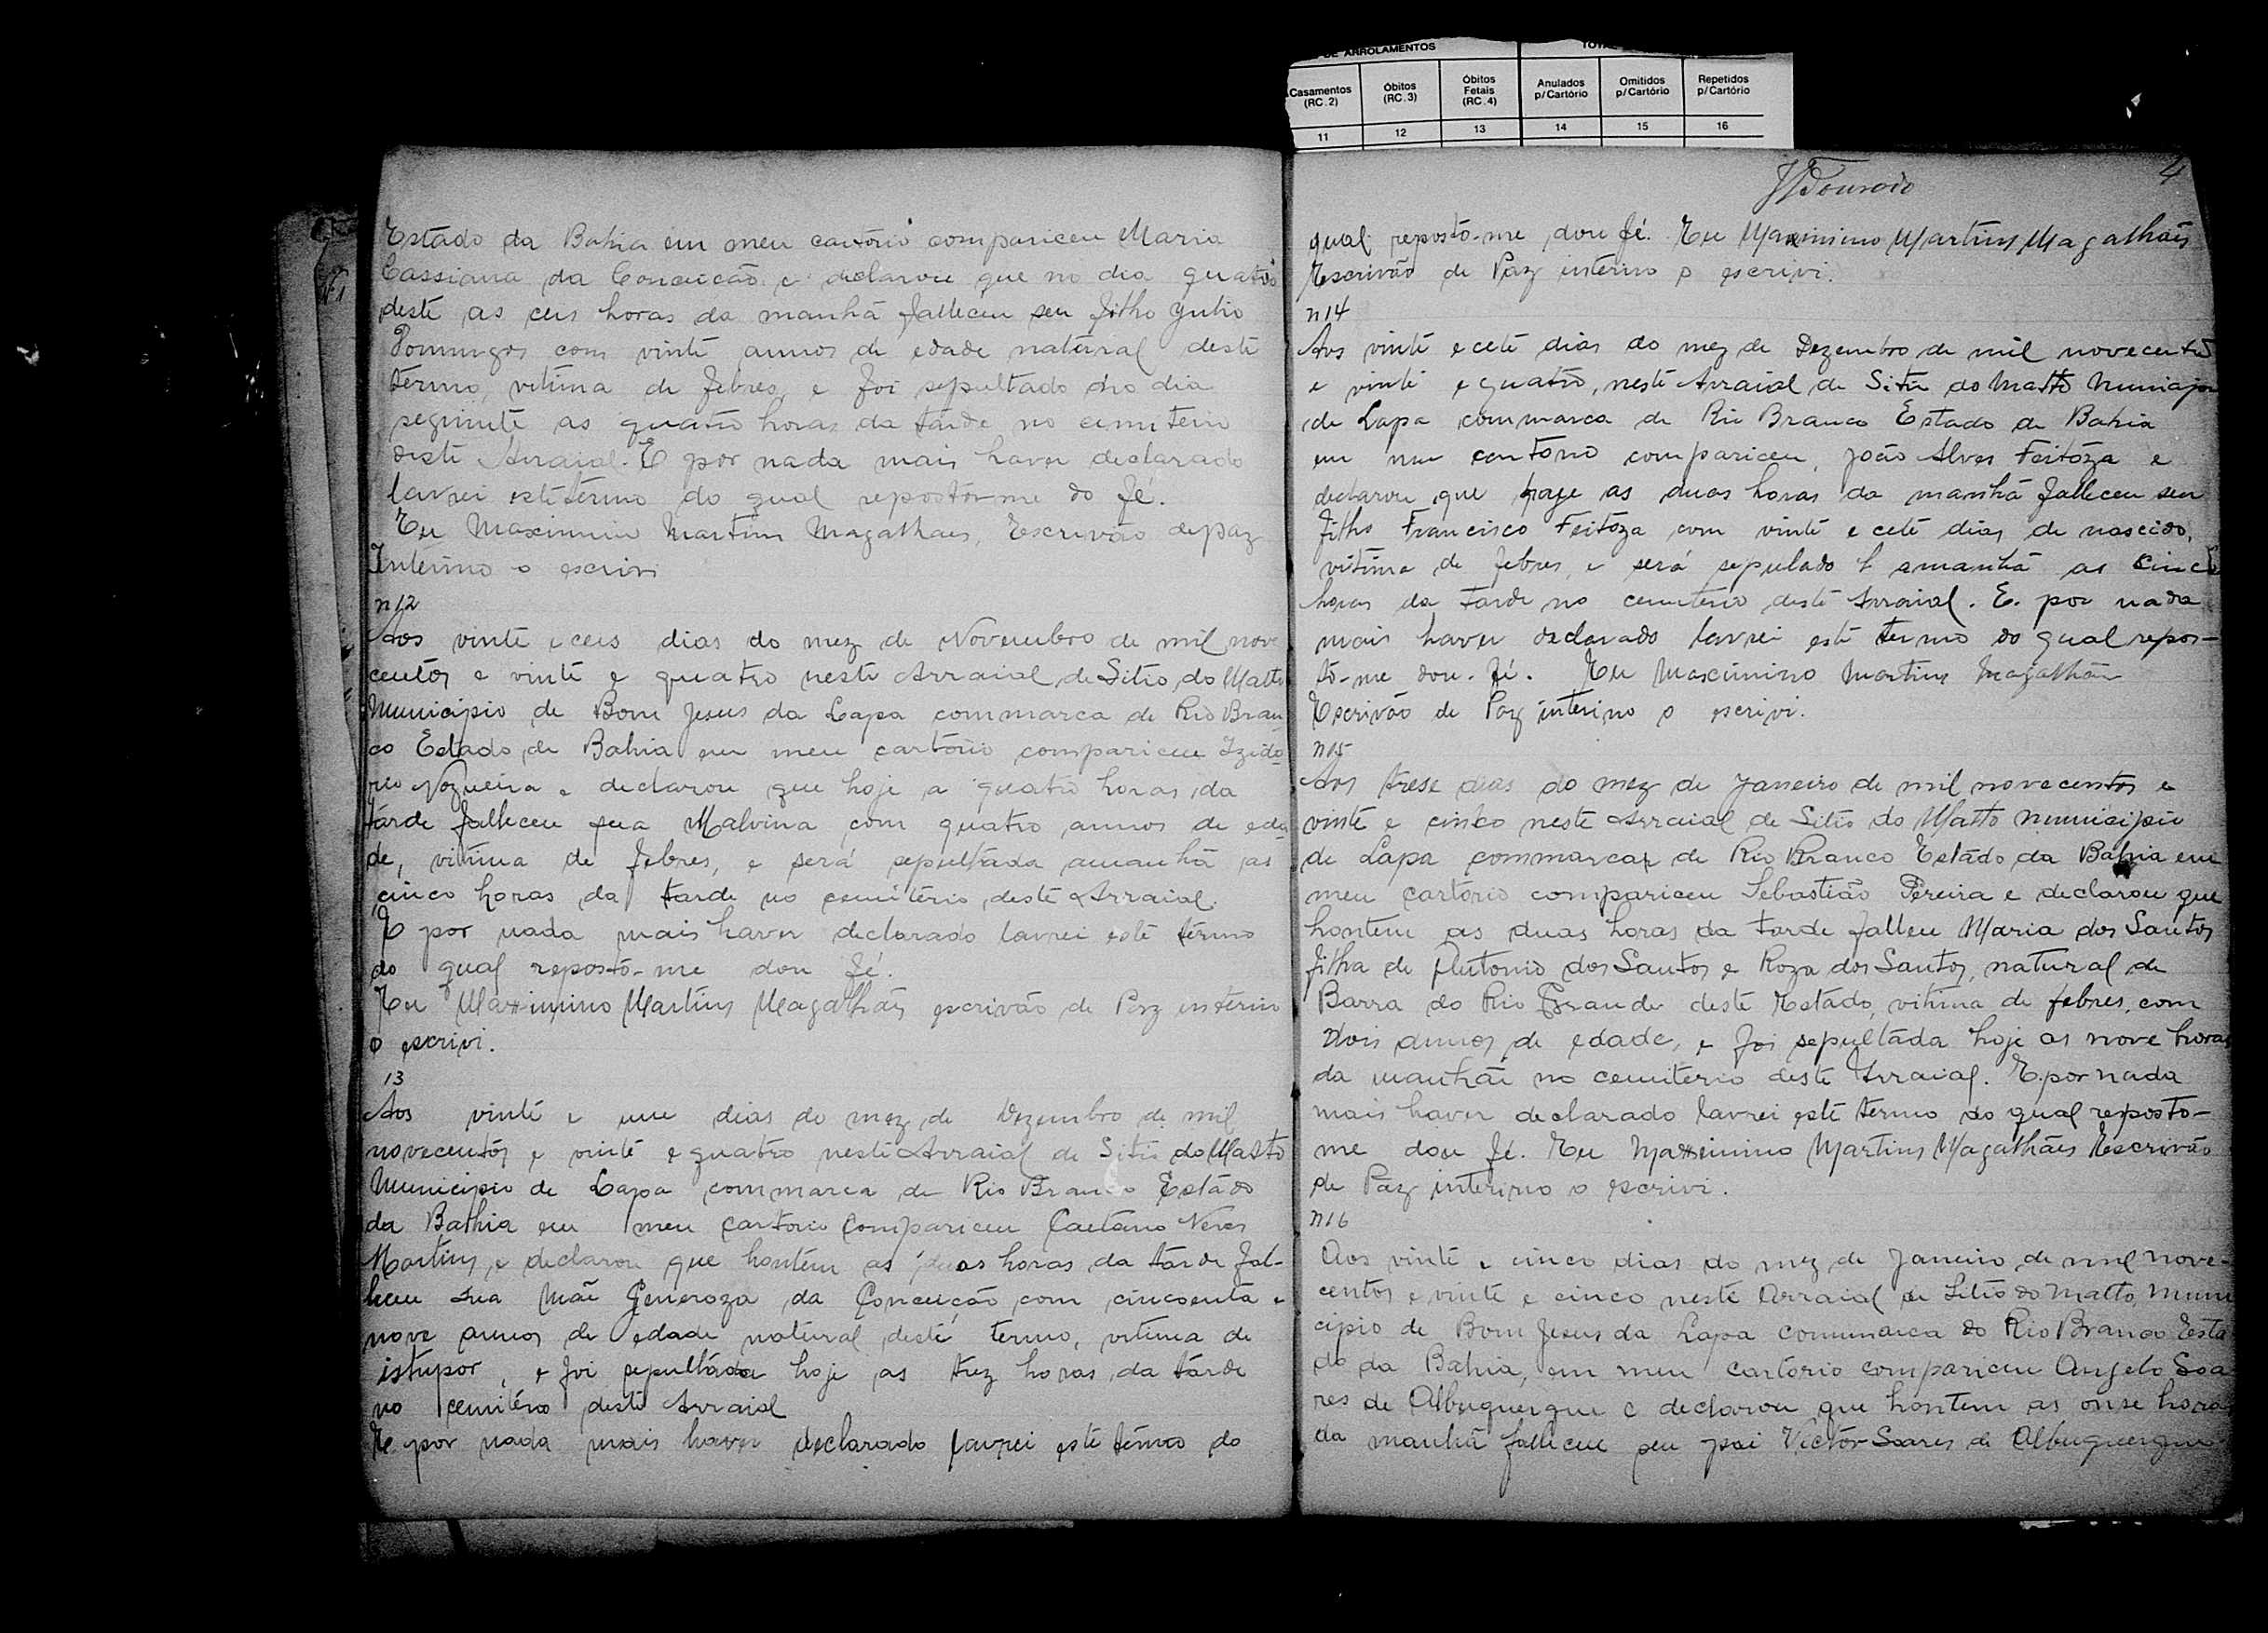 DE ARROLAMENTOS
Casamentos (RC.2)
Óbitos (RC.3)
Óbitos Fetais (RC.4)
Anulados p/Cartório
Omitidos p/Cartório
Repetidos p/Cartório
11 12 13 14 15 16
Estado da Bahia em meu cartorio compariceu Maria
Cassiana da Conceicão e declarou que no dia quatro
deste as ceis horas da manhã falleceu seu filho Julio
Domingos com vinte annos de edade natural deste
termo, vitima de febres, e foi sepultado no dia
seguinte as quatro horas da tarde no cemiterio
deste Arraial. E por nada mais haver declarado
lavrei este termo do qual reposto-me do fé.
Eu Maximino Martins Magalhães, Escrivão de paz
Interino o escrivi
n12
Aos vinte e ceis dias do mez de Novembro de mil nove
centos e vinte e quatro neste Arraial de Sitio do Matto
Municipio de Bom Jesus da Lapa commarca de Rio Bran
co Estado de Bahia em meu cartorio compariceu Izido
rio Nogueira e declarou que hoje a quatro horas da
tarde falleceu sua Malvina com quatro annos de eda
de, vitima de febres, e será sepultada amanhã as
cinco horas da tarde no cemitério deste Arraial.
E por nada mais haver declarado lavrei este termo
do qual reposto-me dou fé.
Eu Maximino Martins Magalhães escrivão de Paz interino
o escrivi.
13
Aos vinte e um dias do mez de Dezembro de mil
novecentos e vinte e quatro neste Arraial de Sitio do Matto
Municipio de Lapa commarca de Rio Branco Estado
da Bahia em meu cartorio compariceu Caetano Neves
Martins e declarou que hontem as duas horas da tarde fal-
leceu sua Mãe Generoza da Conceicão com cincoenta e
nove annos de edade natural deste termo, vitima de
istupor, e foi sepultada hoje as trez horas da tarde
no cemitério deste Arraial
E por nada mais haver declarado lavrei este termo do
4
qual reposto-me dou fé. Eu Maximino Martins Magalhães
Escrivão de Paz interino o escrivi.
n14
Aos vinte e cete dias do mez de Dezembro de mil novecentos
e vinte e quatro, neste Arraial de Sitio do Matto
de Lapa commarca de Rio Branco Estado da Bahia
em meu cartorio compariceu, João Alves Feitóza e
declarou que hoje as duas horas da manhã falleceu seu
filho Francisco Feitoza com vinte e cete dias de nascido,
vitima de febres, e será sepulado amanhã as cinco
horas da tarde no cemiterio deste Arraial. E. por nada
mais haver declarado lavrei este termo do qual repos-
to-me dou. fé. Eu Maximino Martins Magalhães
Escrivão de Paz interino o escrivi.
n15
Aos trese dias do mez de Janeiro de mil novecentos e
vinte e cinco neste Arraial de Sitio do Matto municipio
de Lapa commarca de Rio Branco Estado da Bahia em
meu cartorio compariceu Sebastião Pereira e declarou que
hontem as duas horas da tarde falleu Maria dos Santos
filha de Antonio dos Santos e Roza dos Santos, natural de
Barra do Rio Grande deste Estado, vitima de febres, com
dois annos de edade, e foi sepultada hoje as nove horas
da manhãi no cemiterio deste Arraial. E. por nada
mais haver declarado lavrei este termo do qual reposto-
me dou fé. Eu Maximino Martins Magalhães Escrivão
de Paz interino o escrivi.
n16
Aos vinte e cinco dias do mez de Janeiro de mil nove-
centos e vinte e cinco neste Arraial de Sitio do Matto, Muni
cipio de Bom Jesus da Lapa commarca do Rio Branco Esta
do da Bahia, em meu cartorio compariceu Angelo Soa
res de Albuquerque e declarou que hontem as onse horas
da manhã falliceu seu pai Victor Soares de Albuquerque